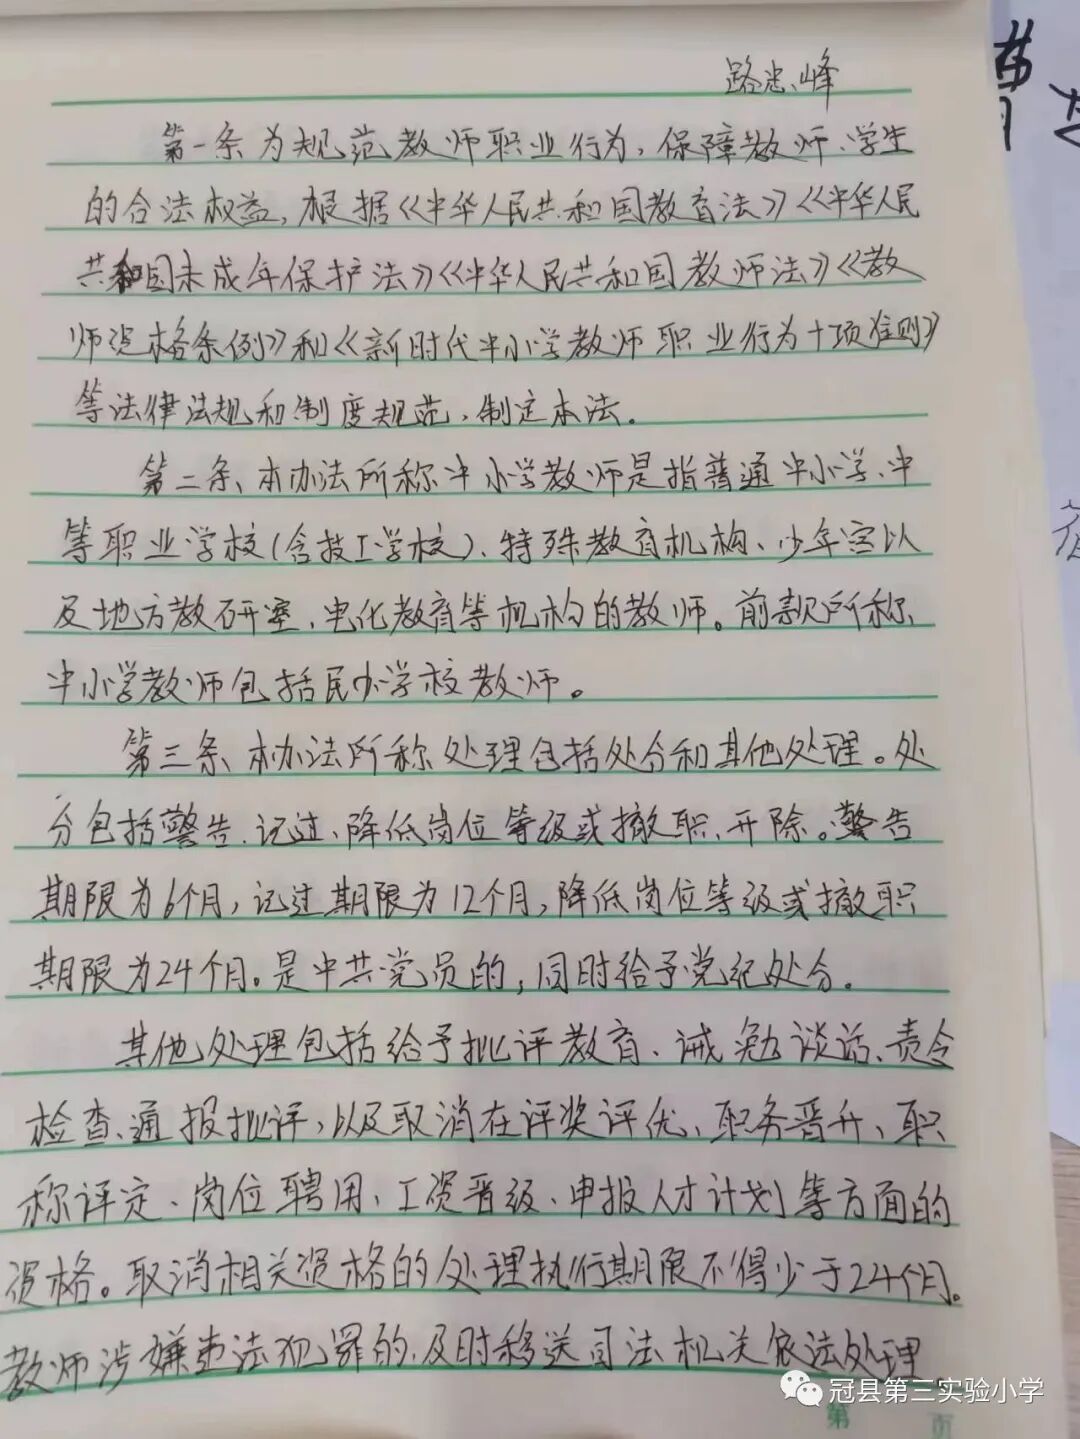 路忠峰
第一条为规范教师职业行为,保障教师、学生
的合法权益,根据《中华人民共和国教育法》《中华人民
共和国未成年保护法》《中华人民共和国教师法》《教
师资格条例》和《新时代中小学教师职业行为十项准则》
等法律法规和制度规范,制定本法。
第二条、本办法所称中小学教师是指普通中小学、中
等职业学校(含技工学校)、特殊教育机构、少年宫以
及地方教研室、电化教育等机构的教师。前款所称、
中小学教师包括民办学校教师。
第三条、本办法所称处理包括处分和其他处理。处
分包括警告、记过、降低岗位等级或撤职、开除。警告
期限为6个月,记过期限为12个月,降低岗位等级或撤职
期限为24个月。是中共党员的,同时给予党纪处分。
其他处理包括给予批评教育、诫勉谈话、责令
检查、通报批评,以及取消在评奖评优、职务晋升、职
称评定、岗位聘用、工资晋级、申报人才计划等方面的
资格。取消相关资格的处理执行期限不得少于24个月。
教师涉嫌违法犯罪的、及时移送司法机关依法处理。
冠县第三实验小学
第 页